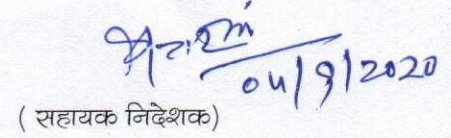 04/9/2020
( सहायक निदेशक)